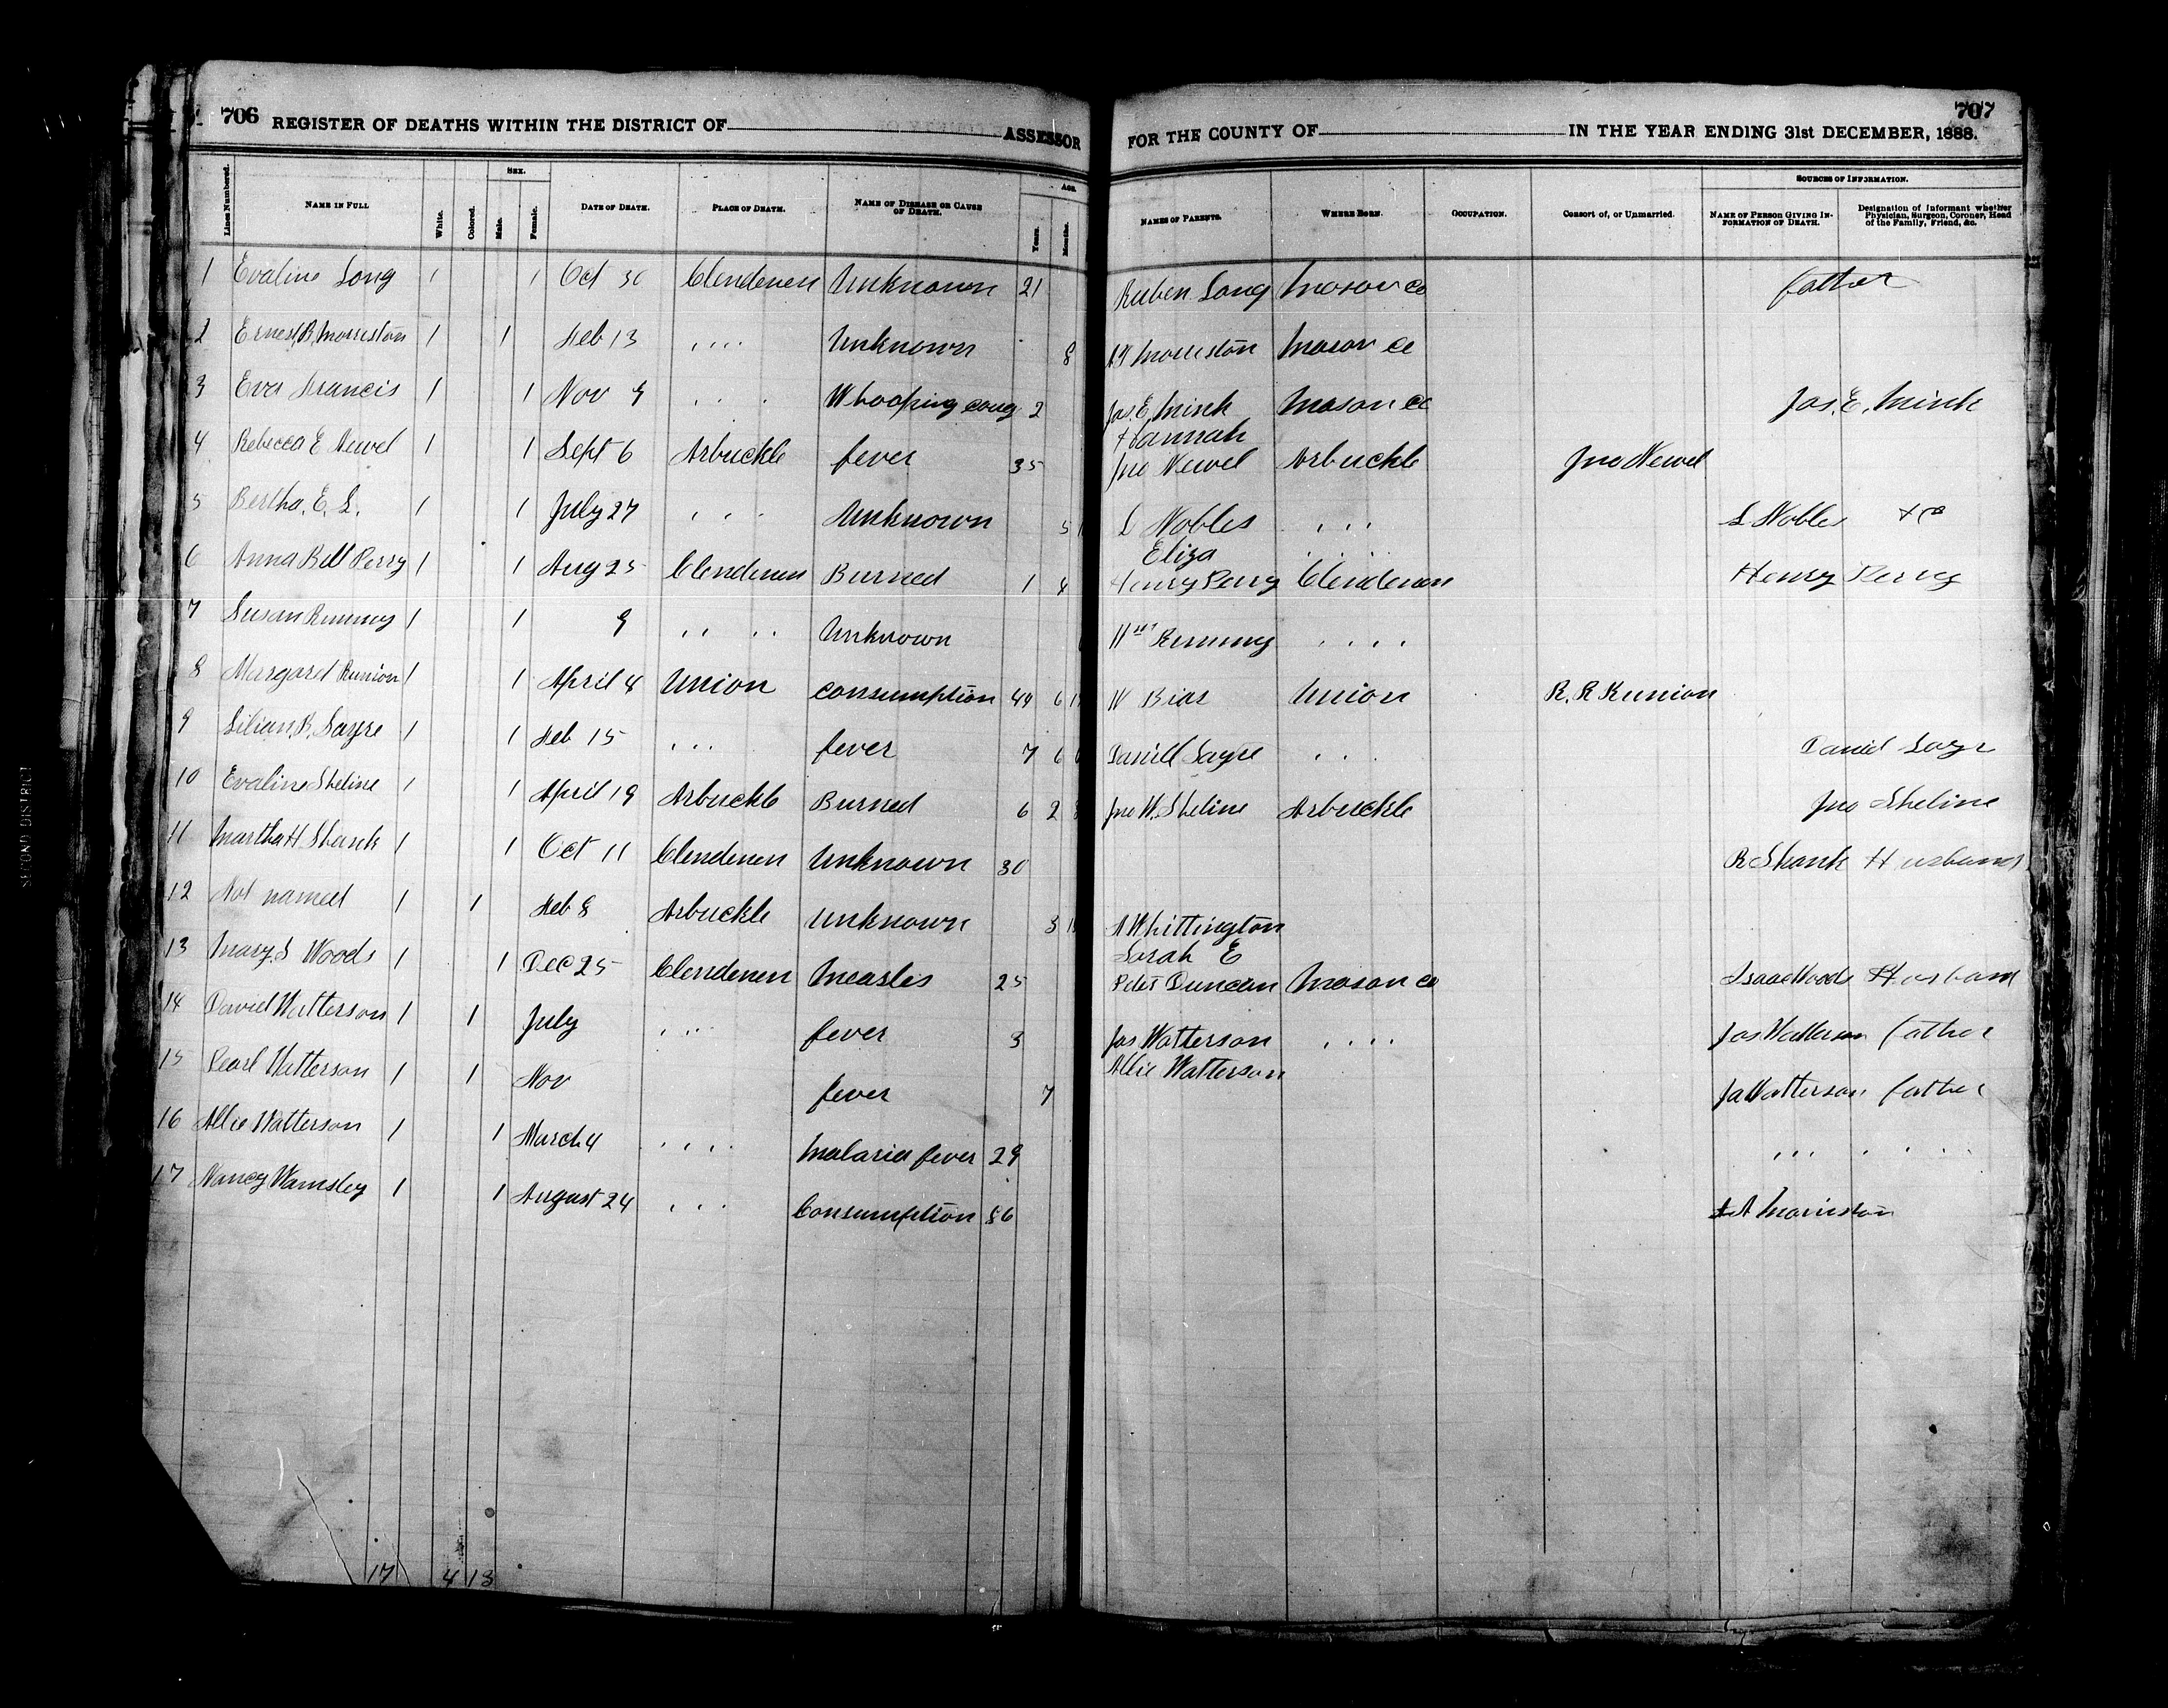 706 REGISTER OF DEATHS WITHIN THE DISTRICT OF ASSESSOR
FOR THE COUNTY OF IN THE YEAR ENDING 31st DECEMBER, 1888. 707
Lines Numbered. NAME IN FULL White. Colored. SEX. Male. Female. DATE OF DEATH. PLACE OF DEATH. NAME OF DISEASE OR CAUSE OF DEATH. AGE. Years. Months. NAMES OF PARENTS. WHERE BORN. OCCUPATION. Consort of, or Unmarried. SOURCES OF INFORMATION. NAME OF PERSON GIVING INFORMATION OF DEATH. Designation of Informant whether Physician, Surgeon, Coroner, Head of the Family, Friend, &c.
1 Evaline Long 1 1 Oct 30 Clendenen Unknown 21 Ruben Long Mason Co father
2 Ernest B. Morriston 1 1 Feb 13 " " Unknown 8 Morriston Mason Co
3 Eva Francis 1 1 Nov 9 " " Whooping coug 2 Jas. E. Mink Mason Co Jas. E. Mink
Hannah
4 Rebecca E Newel 1 1 Sept 6 Arbuckle fever 35 Jno Newel Arbuckle Jno Newel
5 Bertha. E. L. 1 1 July 27 " " Unknown 5 L Nobles " " L Nobles
Eliza
6 Anna Bell Perry 1 1 Aug 25 Clendenen Burned 1 4 Henry Perry Clendenen Henry Perry
7 Susan 1 1 9 " " Unknown " "
8 Margaret Runion 1 1 April 4 Union consumption 44 6 W Bias Union R. R Runion
9 Lilian. B. Sayre 1 1 Feb 15 " " fever 7 6 Daniell Sayre " " Daniel Sayr
10 Evaline Sheline 1 1 April 19 Arbuckle Burned 6 2 Jno W. Sheline Arbuckle Jno Sheline
11 Martha H Shank 1 1 Oct 11 Clendenen Unknown 30 R Shank Husband
12 Not named 1 1 Feb 8 Arbuckle Unknown 3 A Whittington
Sarah E
13 Mary. S Woods 1 1 Dec 25 Clendenen Measles 25 Peter Duncan Mason Co Isaac Woods Husband
14 David Watterson 1 1 July " " fever 3 Jas Watterson " " Jas Watterson father
Allie Watterson
15 Pearl Watterson 1 1 Nov fever 7 Ja Watterson father
16 Allie Watterson 1 1 March 4 " " Malaria fever 29 " " " "
17 Nancy Wamsley 1 1 August 24 " " Consumption 86 A Morriston
17 4 13
SECOND DISTRICT